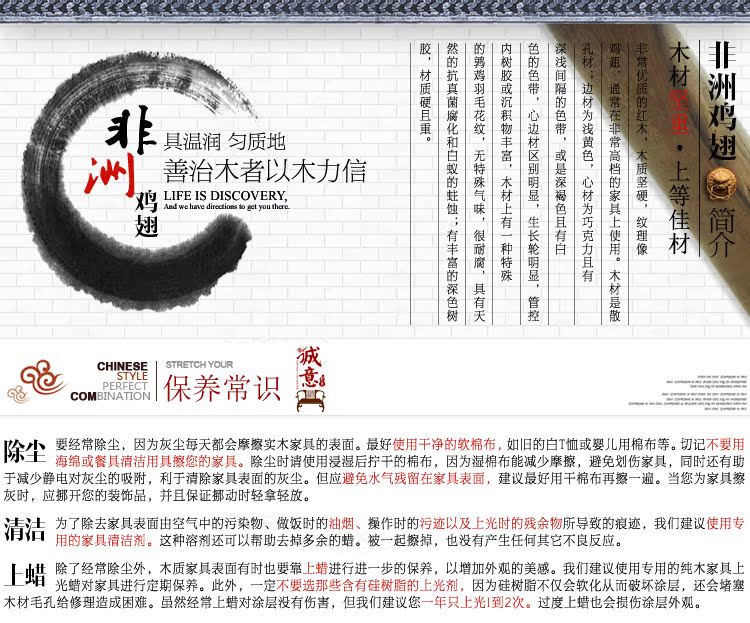 非洲鸡翅
具温润 匀质地
善治木者以木力信
LIFE IS DISCOVERY,
And we have directions to get you there.
非洲鸡翅 简介
木材坚重·上等佳材
非常优质的红木，木质坚硬，纹理像
鸡翅，通常在非常高档的家具上使用。木材是散
孔材；边材为浅黄色，心材为巧克力且有
深浅间隔的色带，或是深褐色且有白
色的色带，心边材区别明显，生长轮明显，管控
内树胶或沉积物丰富，木材上有一种特殊
的鹦鸡羽毛花纹，无特殊气味，很耐腐，具有天
然的抗真菌腐化和白蚁的蛀蚀；有丰富的深色树
胶，材质硬且重。
CHINESE
STYLE
PERFECT
COMBINATION
STRETCH YOUR
保养常识
诚意
除尘 要经常除尘，因为灰尘每天都会摩擦实木家具的表面。最好使用干净的软棉布，如旧的白T恤或婴儿用棉布等。切记不要用
海绵或餐具清洁用具擦您的家具。除尘时请使用浸湿后拧干的棉布，因为湿棉布能减少摩擦，避免划伤家具，同时还有助
于减少静电对灰尘的吸附，利于清除家具表面的灰尘。但应避免水气残留在家具表面，建议最好用干棉布再擦一遍。当您为家具擦
灰时，应挪开您的装饰品，并且保证挪动时轻拿轻放。
清洁 为了除去家具表面由空气中的污染物、做饭时的油烟、操作时的污迹以及上光时的残余物所导致的痕迹，我们建议使用专
用的家具清洁剂。这种溶剂还可以帮助去掉多余的蜡。被一起擦掉，也没有产生任何其它不良反应。
上蜡 除了经常除尘外，木质家具表面有时也要靠上蜡进行进一步的保养，以增加外观的美感。我们建议使用专用的纯木家具上
光蜡对家具进行定期保养。此外，一定不要选那些含有硅树脂的上光剂，因为硅树脂不仅会软化从而破坏涂层，还会堵塞
木材毛孔给修理造成困难。虽然经常上蜡对涂层没有伤害，但我们建议您一年只上光1到2次。过度上蜡也会损伤涂层外观。